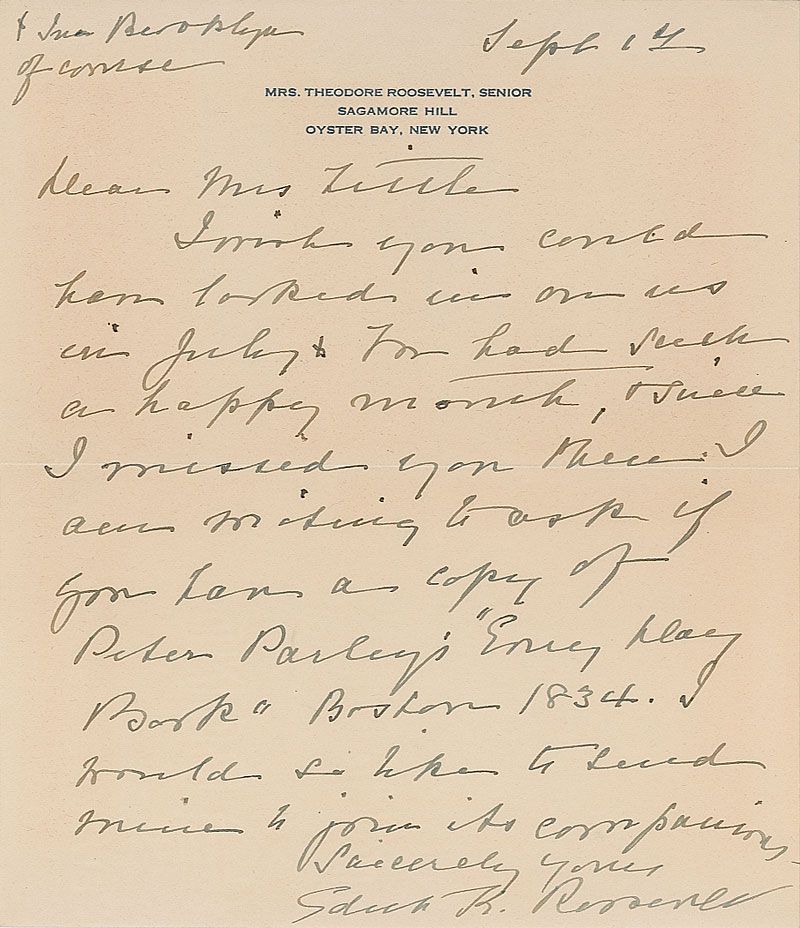 of course
Sept 17
MRS. THEODORE ROOSEVELT, SENIOR
SAGAMORE HILL
OYSTER BAY, NEW YORK
Dear Mrs Little
I wish you could
have looked in on us
in July & had such
a happy month, & since
I missed you then I
am writing to ask if
you have a copy of
Peter Parley's "Every Day
Book" Boston 1834. I
would so like to send
mine to join its companions
Sincerely yours
Edith K. Roosevelt